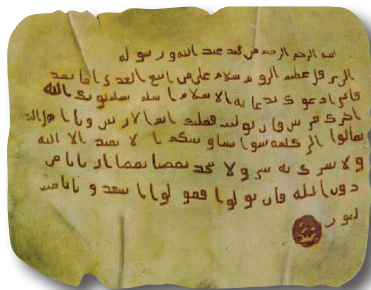 بسم الله الرحمن الرحيم من محمد عبد الله ورسوله
الى هرقل عظيم الروم سلام على من اتبع الهدى اما بعد
فانى ادعوك بدعاية الاسلام اسلم تسلم يوتك الله
اجرك مرتين فان توليت فعليك اثم الاريسين ويا اهل الكتاب
تعالوا الى كلمة سوا بيننا وبينكم ان لا نعبد الا الله
ولا نشرك به شيا ولا يتخذ بعضنا بعضا اربابا من
دون الله فان تولوا فقولوا اشهدوا بانا مس
لمون